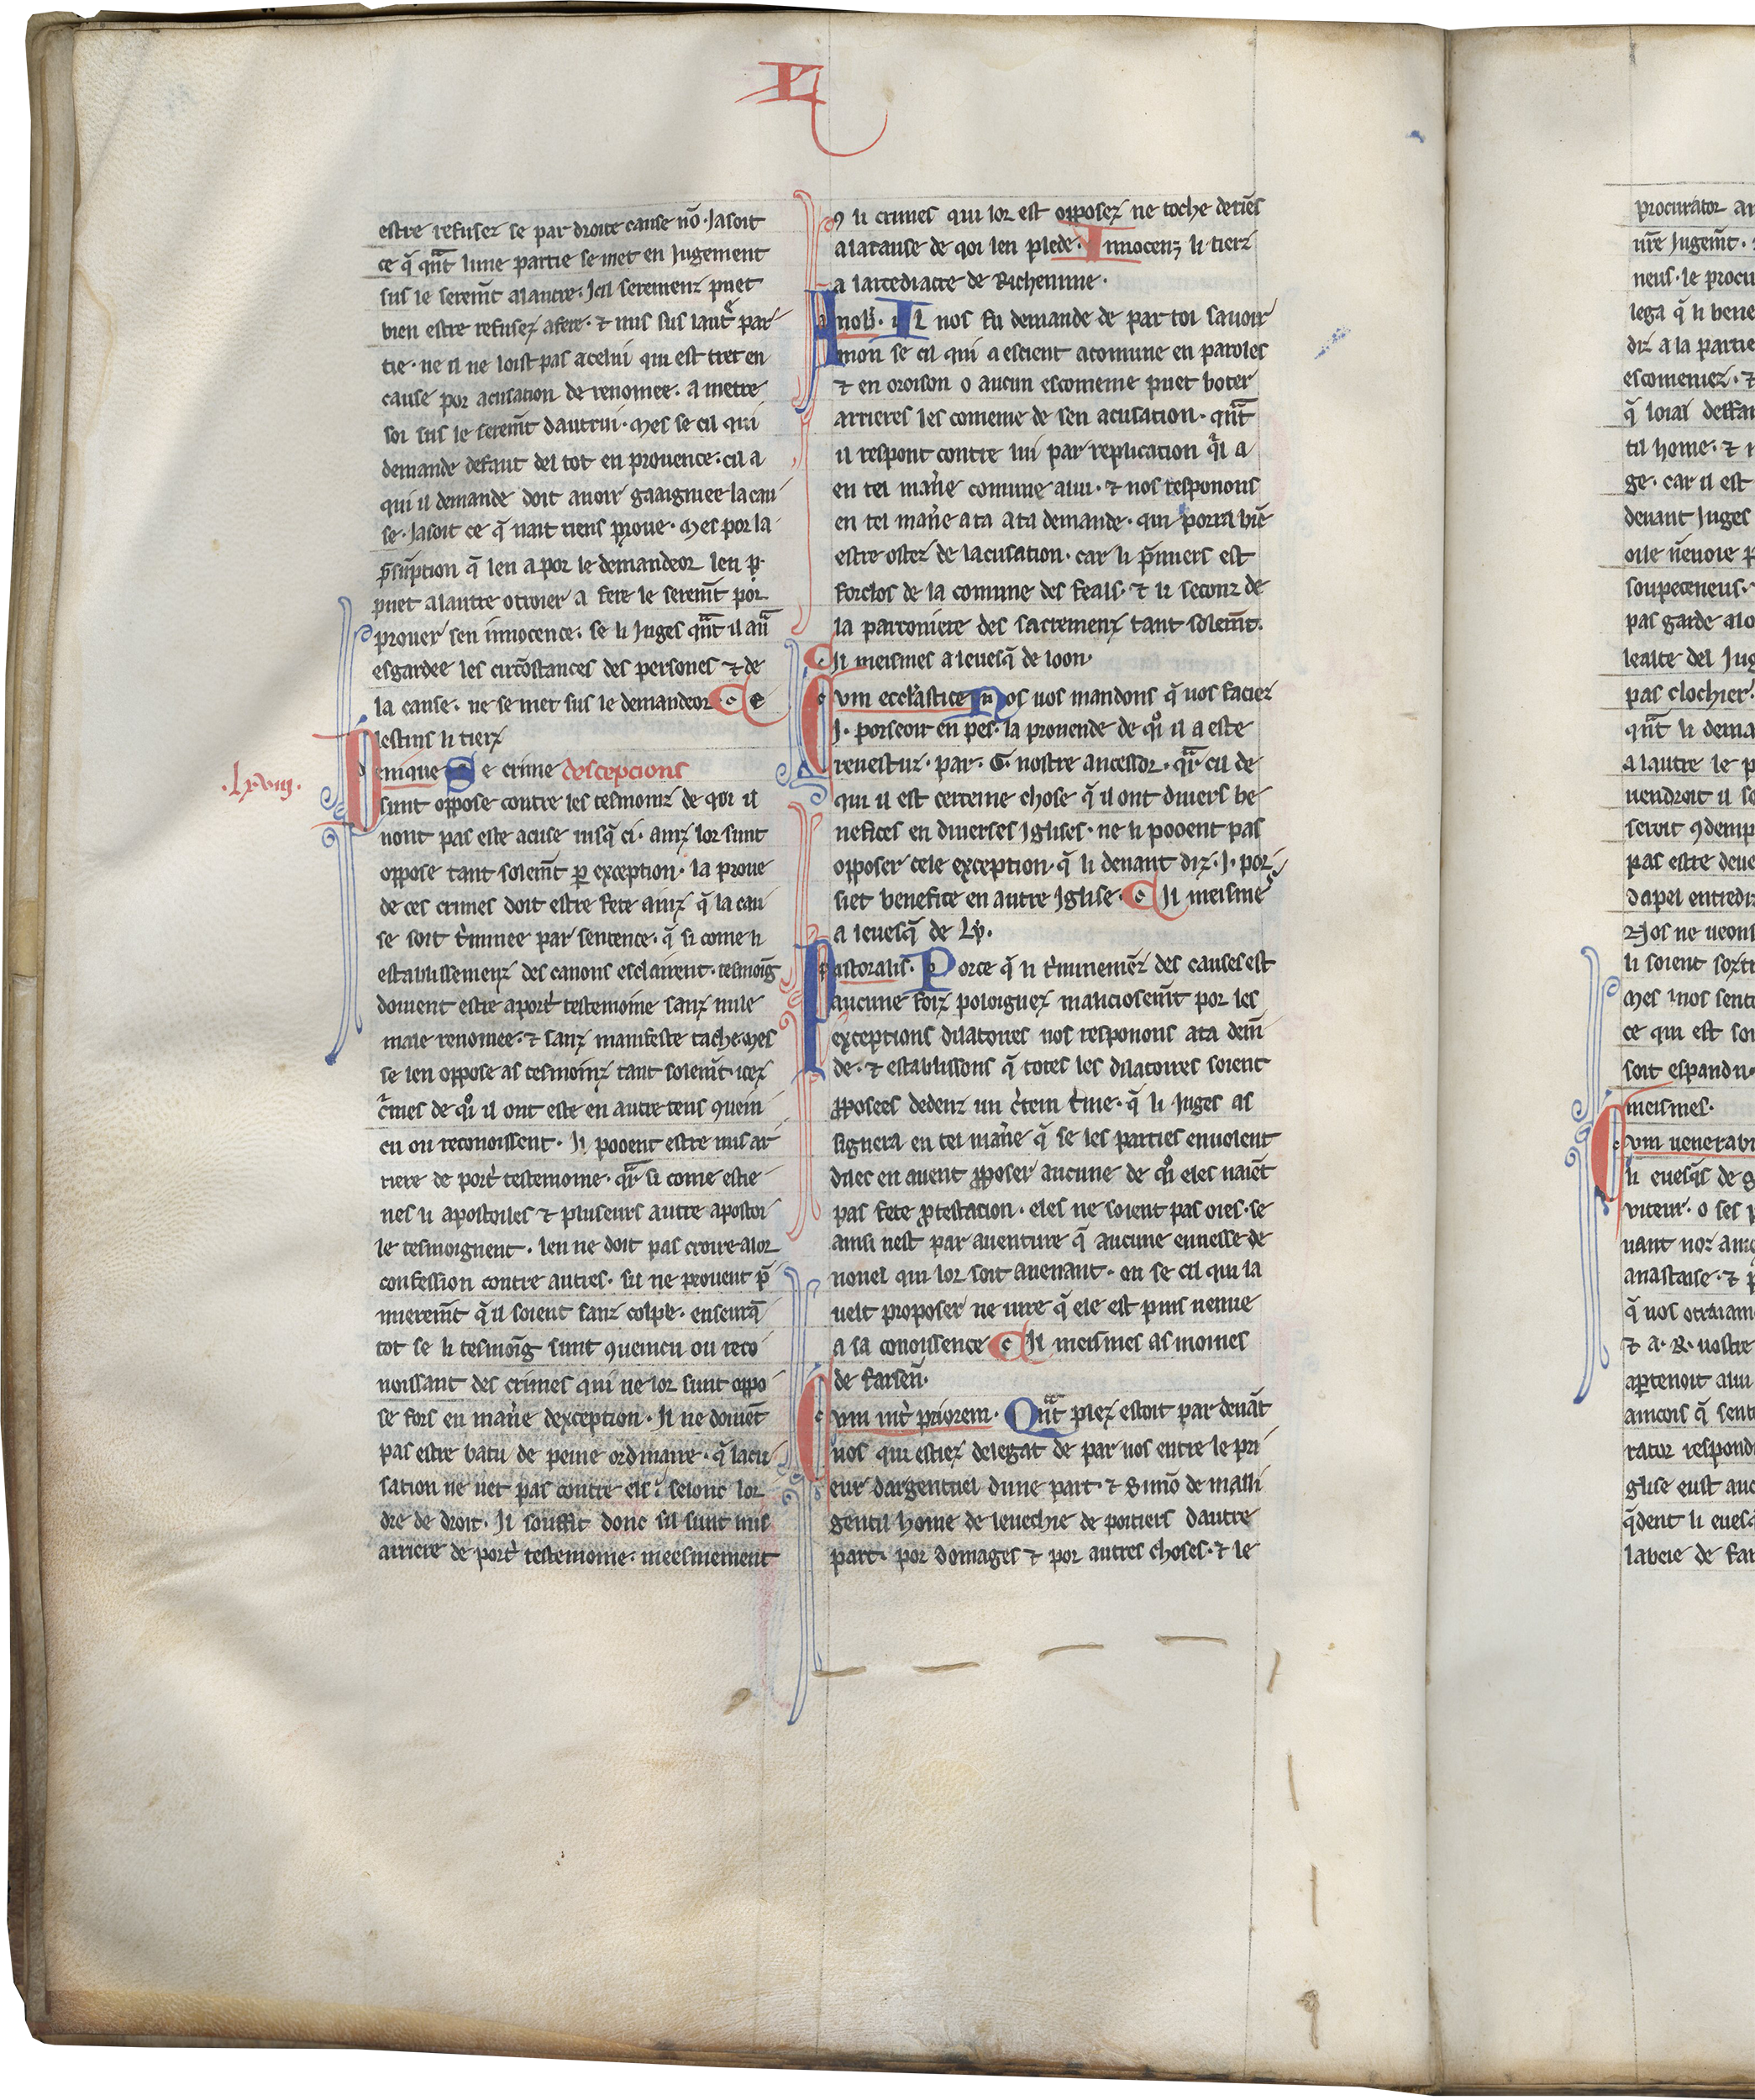 L
estre refusez se par droite cause nō. Jasoit
ce q̄ qn̄t lune partie se met en Jugement
sus le serem̄t alautre. Icil seremenz puet
bien estre refusez a fere. ⁊ mis sus lautꝰ par
tie. ne il ne loist pas acelui qui est tret en
cause por acusation de renomee. a metre
sor sus le serem̄t dautrui. Mes se cil qui
demande defaut del tot en prouence. cil a
qui il demande doit auoir gaaigniee la cau
se. Jasoit ce q̄ nait riens proue. Mes por la
p̄sūption q̄ len a por le demandeor len p.
puet alautre otroier a fere le serem̄t por
prouer sen innocence. se li Juges qn̄t il au͞a
esgardee les circōstances des persones ⁊ de
la cause. ne se met sus le demandeor. C e
lestins li tierz
.lxviij.
Denique Se crime desceptions
sunt oppose contre les tesmoinz de qoi il
nont pas este acuse iusq̄ ci. ainz lor sunt
oppose tant solem̄t ꝑ exception. la proue
de ces crimes doit estre fete ainz q̄ la cau
se soit t'minee par sentence. q̄ si come li
establissemenz des canons esclairent. tesmoīg
doiuent estre aport' testemoine sanz nule
male renomee. ⁊ sanz manifeste tache. Mes
se len oppose as tesmoinz tant solem̄t icez
c'mes de qͦi il ont este en autre tens ꝯuein
cu ou reconoissent. Il pooent estre mis ar
riere de port' testemoine. qr̄ si come estie
nes li apostoiles ⁊ pluseurs autre apostoi
le tesmoignent. len ne doit pas croire alor
confession contre autres. sil ne prouent p̄
mierem̄t q̄ il soient sanz colpe. enseurq̄
tot se li tesmoīg sunt ꝯueincu ou reco
noissant des crimes qui ne lor sunt oppo
se fors en man'e dexception. Il ne doiuēt
pas estre batu de peine ordinaire. q̄ lacu
sation ne uet pas contre els selonc lor
dre de droit. Il souffit donc sil sunt mis
arriere de port' testemoine. meesmement
ꝯ li crimes qui lor est opposez ne toche deriēs
alacause de qoi len plede. Innocenz li tierz
a larcediacre de Richemine.
A nob'. il Il nos fu demande de par toi sauoir
mon se cil qui a escient acomune en paroles
⁊ en oroison o aucun escomenie puet boter
arrieres les comenie de sen acusation. qn̄t
il respont contre lui par replication q̄l a
en tel man'e comune alui. ⁊ nos responons
en tel man'e ata ata demande. qui porra biē
estre ostez de lacusation. car li p̄miers est
forclos de la comune des feals. ⁊ li seconz de
la parconiere des sacremenz tant solem̄t.
C Il meismes a leuesq̄ de loon.
Cum eccl'astice Nos uos mandons q̄ uos faciez
.I. porseoir en pes. la prouende de qͦi il a este
reuestuz. par. G. nostre ancessor. qr̄ cil de
qui il est certeine chose q̄ il ont diuers be
nefices en diuerses Iglises. ne li pooent pas
opposer cele exception. q̄ li deuant diz. I. por
siet benefice en autre Iglise. C Il meismeˢ
a leuesq̄ de Ly.
Pastoralis. Porce q̄ li t'minemēz des causes est
aucune foiz poloignez maliciosem̄t por les
exceptions dilatoires nos responons ata dem̄
de. ⁊ establissons q̄ totes les dilatoires soient
ꝓposees dedenz un c'tein t'me. q̄ li Juges as
signera en tel man'e q̄ se les parties enuolent
dilec en auent ꝓposer aucune de qͦi eles naiēt
pas fete ꝓtestacion. eles ne soient pas oies. se
ainsi nest par auenture q̄ aucune ennesse de
nouel qui lor soit auenant. ou se cil qui la
uelt proposer ne iure q̄ ele est puis uenue
a sa conoissence C Il meismes as moines
de farsen̄.
Cum int' priorem. Qn̄t plez estoit par deuāt
uos qui estiez delegat de par nos entre le pri
eur dargentuel dune part. ⁊ Simō de malli
gentil home de leuechie de poitiers dautre
part. por domages ⁊ por autres choses. ⁊ le
procurator
ur̄e Jugem̄t.
neus. le procu
lega q̄ li bene
diz a la partie
escomeniez. ⁊
q̄ loial deffan
til home. ⁊
ge. car il est
deuant Juges
oile n̄enoie
soupeceneus.
pas garde alo
lealte del Jug
pas clochier.
qn̄t li dema
alautre le p
uendroit il se
seroit ꝯdemp
pas estre deue
dapel entrediz
Nos ne ueons
li soient sorti
Mes Inos sente
ce qui est son
soit espandu.
meismes.
Cum uenerabi
li euesq̄s de g
uiteur. o ses
uant nos
anastaise. ⁊
q̄ uos otroiam
⁊ a. R. uostre
apartenoit alui
aincois q̄ sent
rator respond
glise eust auc
q̄dent li euesq
labeie de far